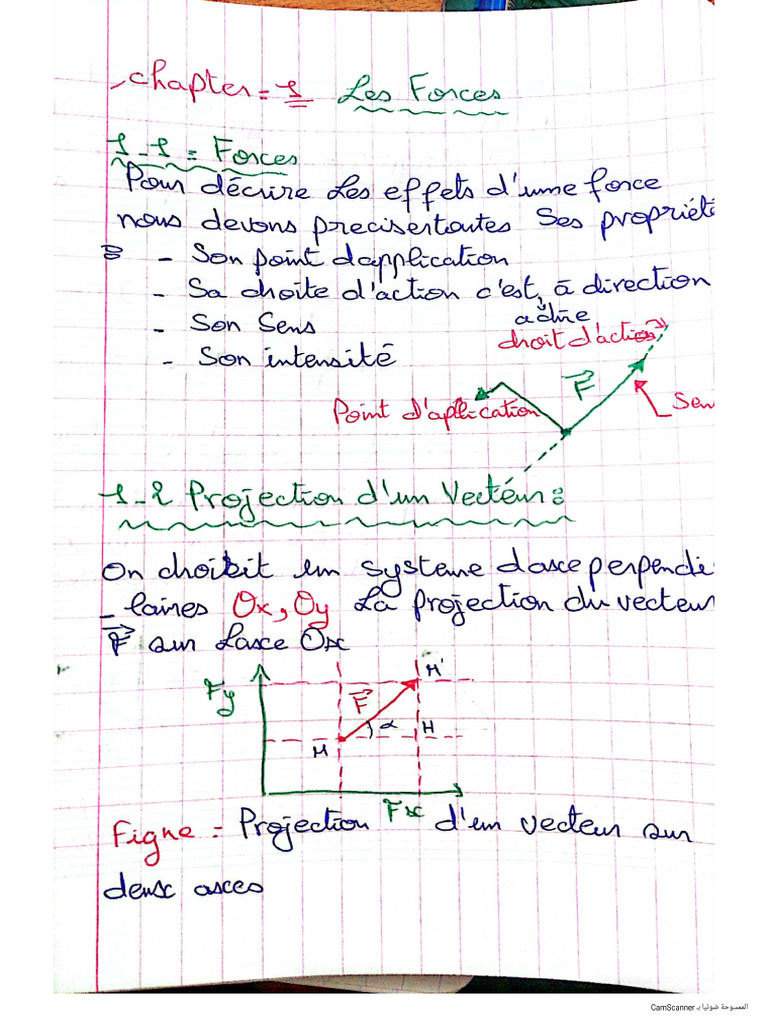 chapter = 1 Les Forces
1-1 = Forces
Pour décrire les effets d'une force
nous devons precisertoutes Ses propriété
: - Son point d'application
- Sa droite d'action c'est, à direction
à dire
- Son Sens
droit d'action
- Son intensité
F
Point d'aplication
Sen
1-2 Projection d'un Vectéur :
On choisit un systeme d'axe perpendi
-laires Ox, Oy La projection du vecteur
F sur L'axe Ox
M'
Fy
F
α
H
M
Fx
Figne = Projection d'un vecteur sur
deux axces
الممسوحة ضوئيا بـ CamScanner